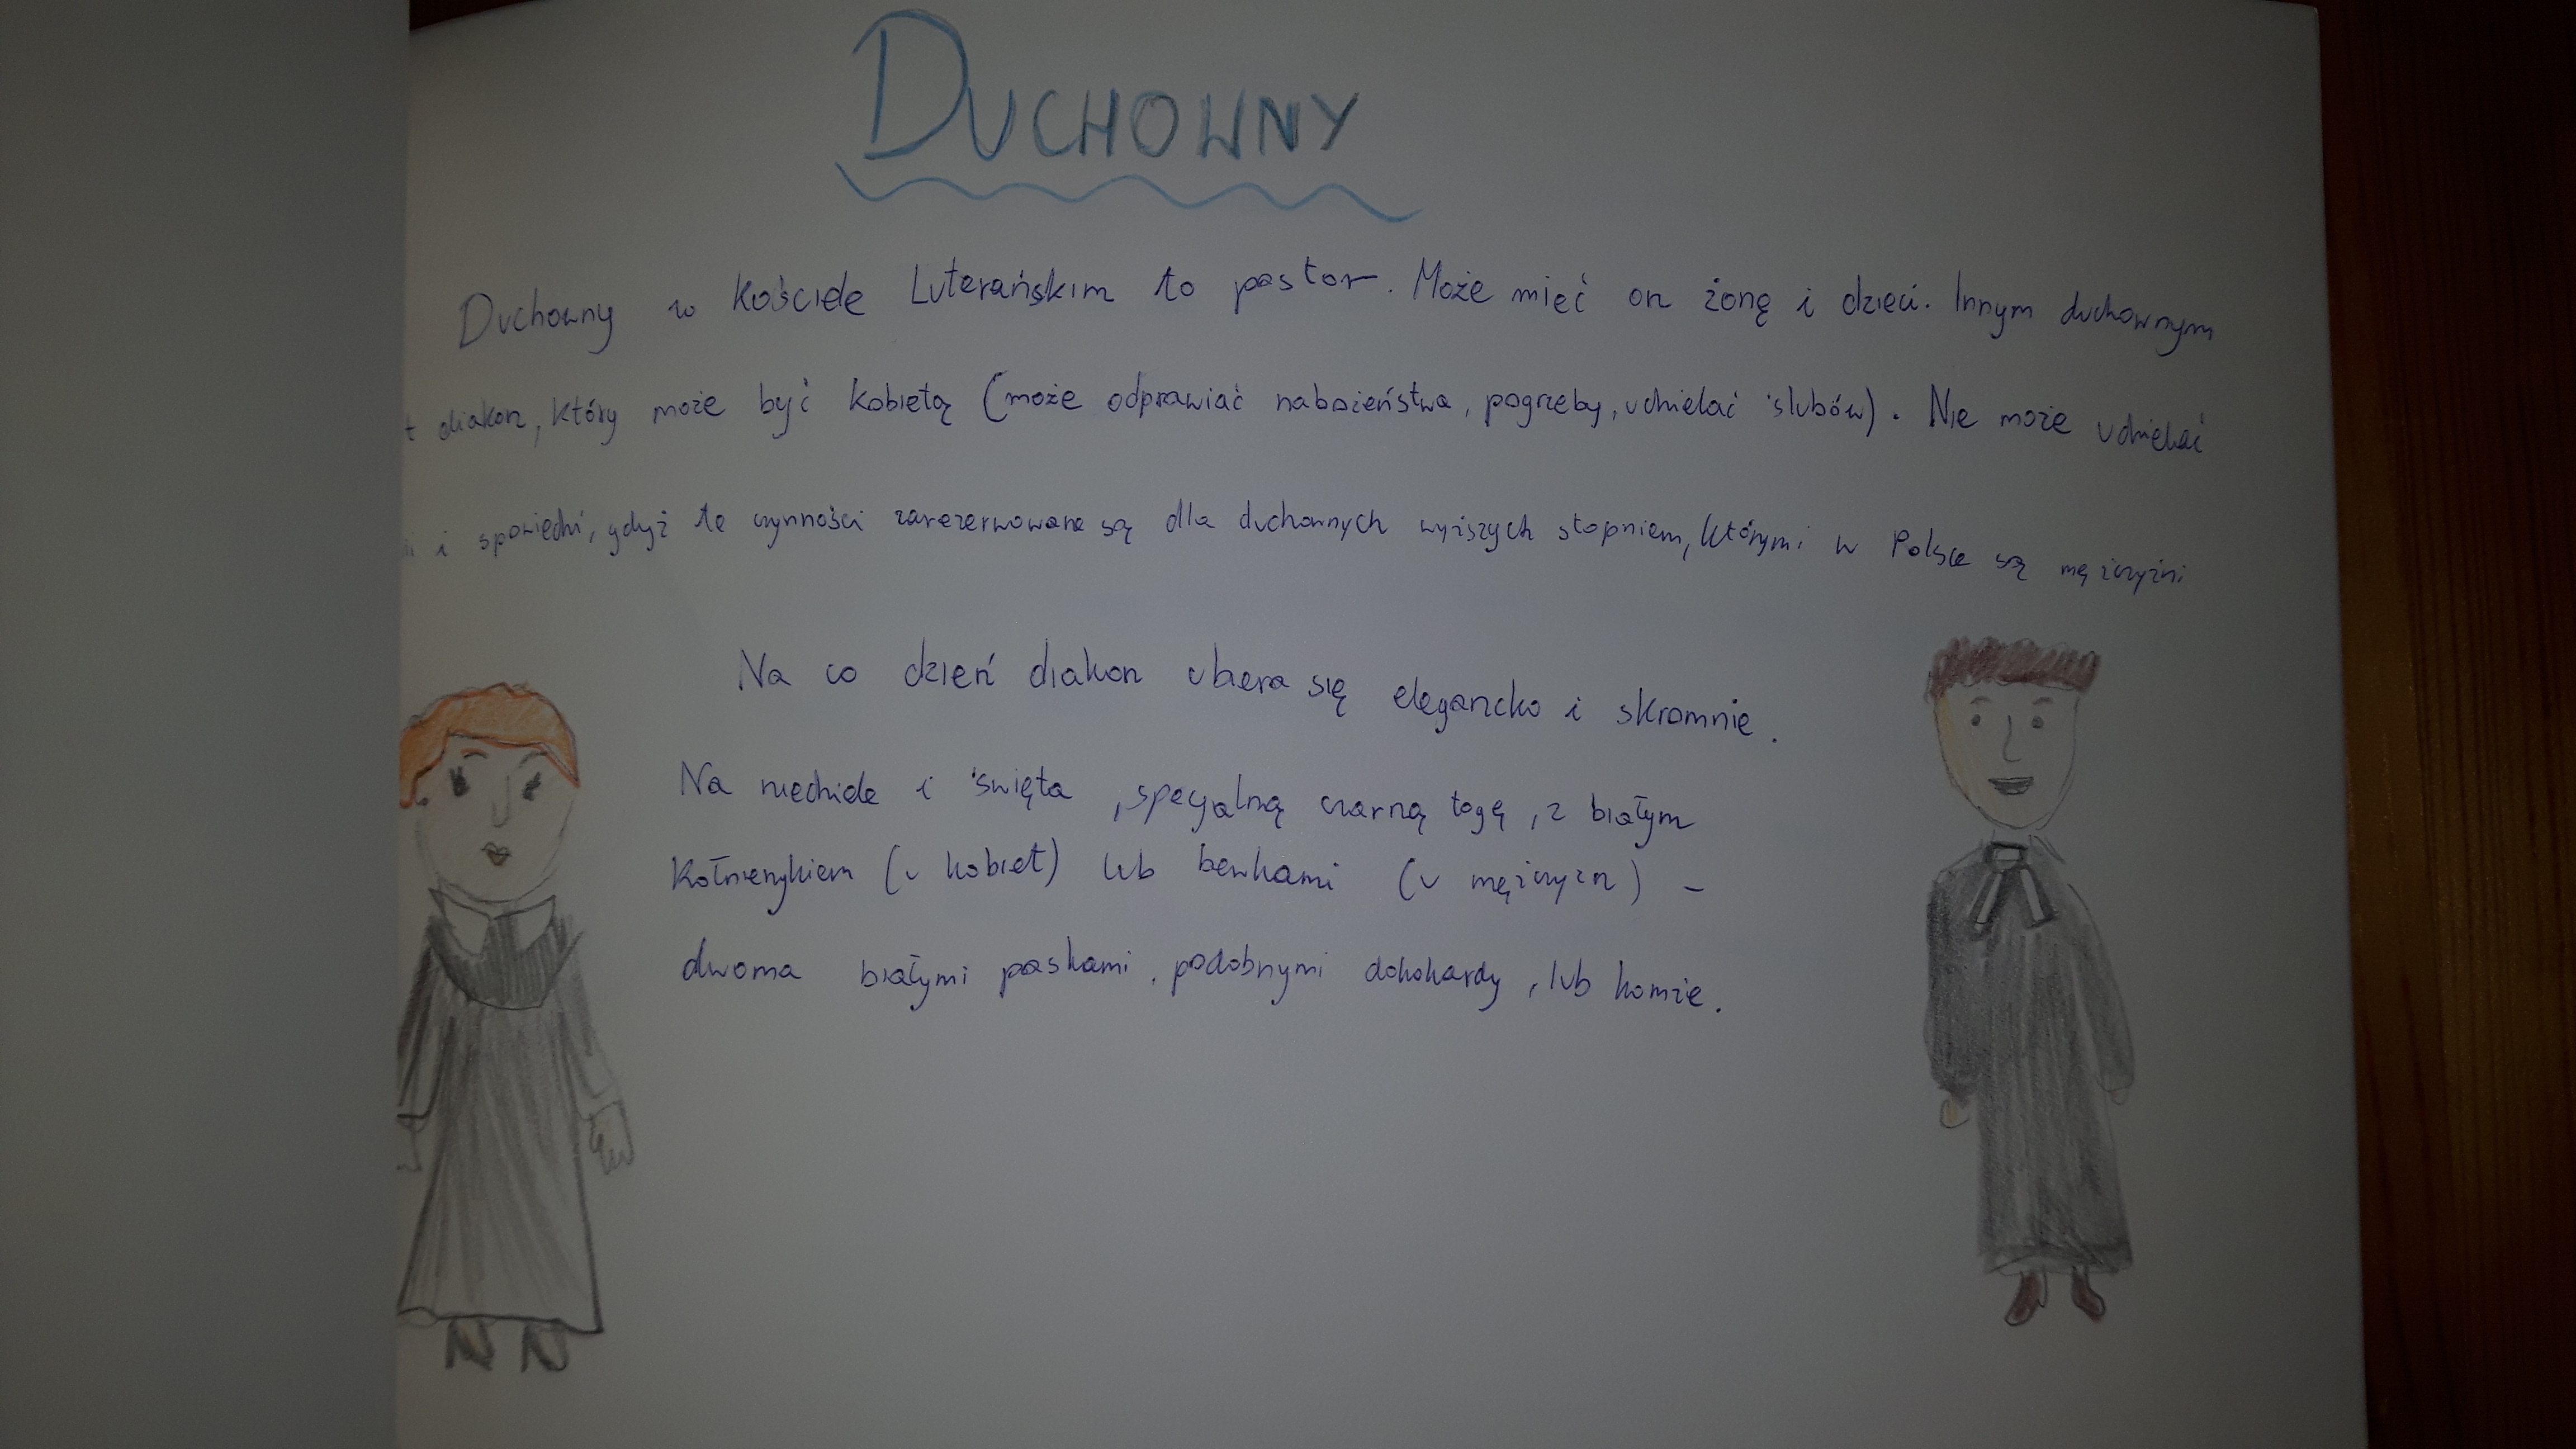 DUCHOWNY
Duchowny w Kościele Luterańskim to pastor. Może mieć on żonę i dzieci. Innym duchownym
t diakon, który może być kobietą (może odprawiać nabożeństwa, pogrzeby, udzielać ślubów). Nie może udzielać
i i spowiedzi, gdyż te czynności zarezerwowane są dla duchownych wyższych stopniem, którymi w Polsce są mężczyźni
Na co dzień diakon ubiera się elegancko i skromnie.
Na niedziele i święta, specjalną czarną togę, z białym
Kołnierzykiem (u kobiet) lub befkami (u mężczyzn) -
dwoma białymi paskami, podobnymi do kokardy, lub komże.